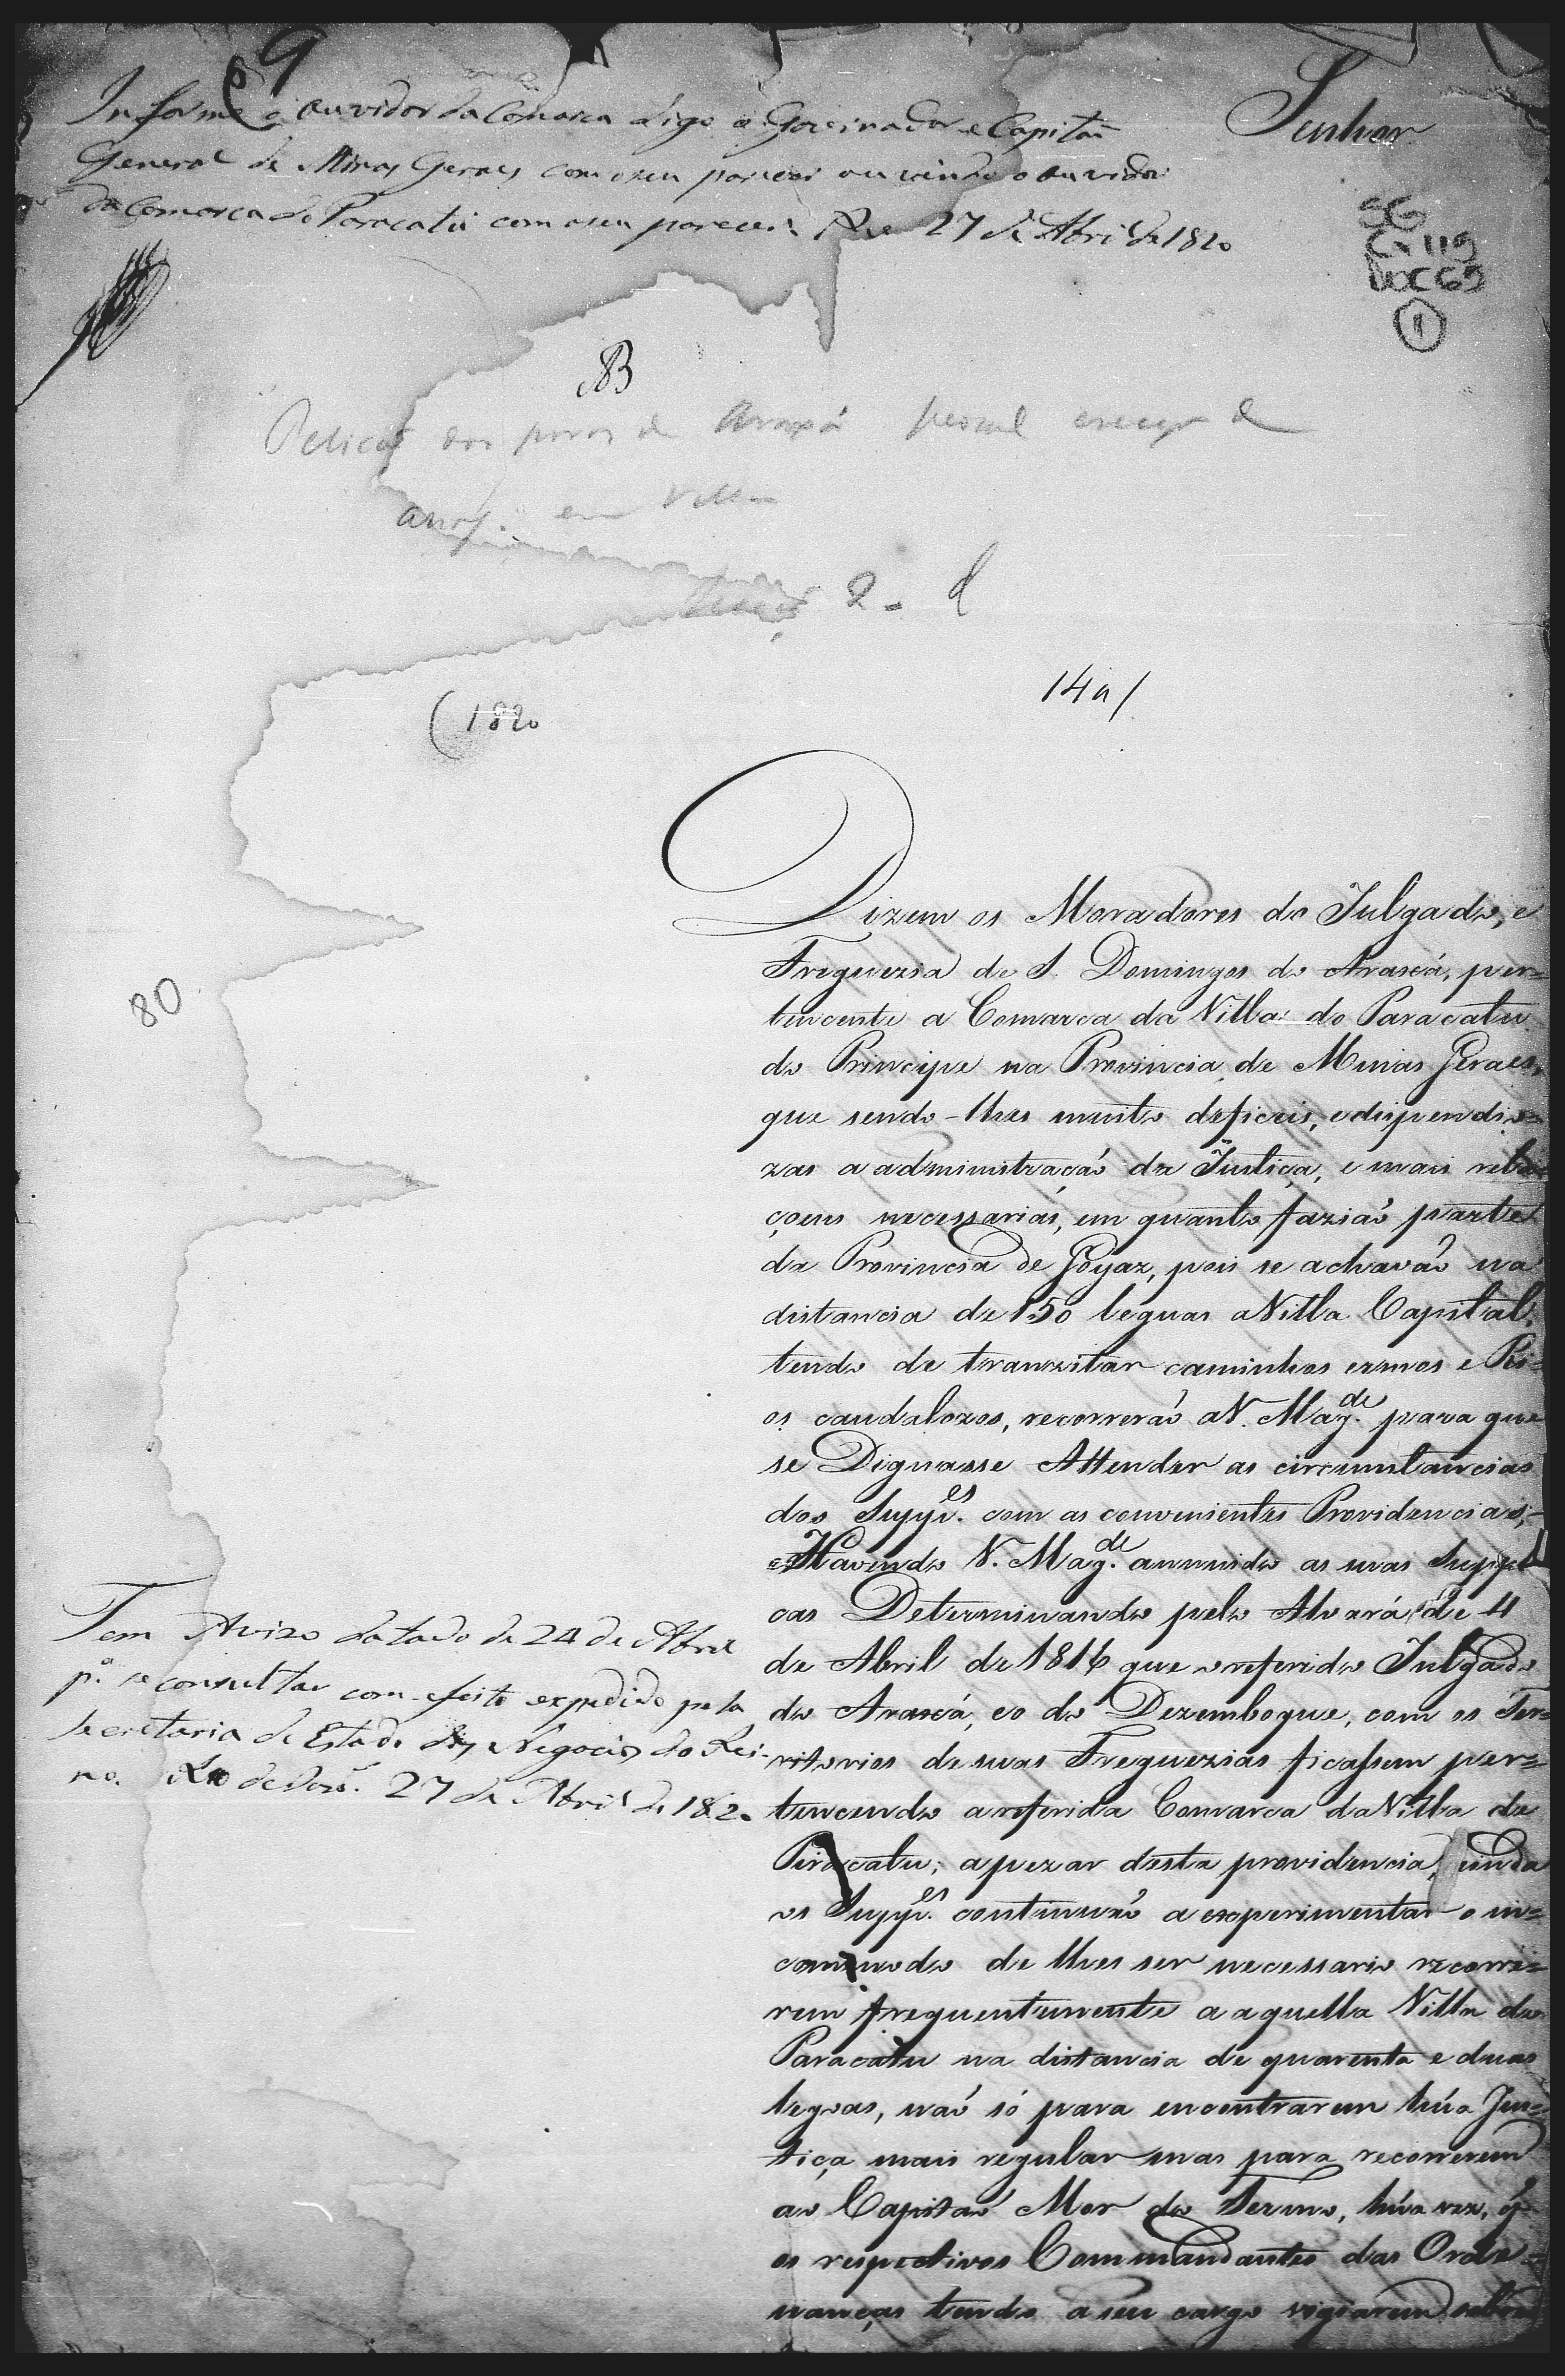 9
Informe o Ouvidor da Comarca digo o Governador e Capitaõ
General de Minas Geraes com o seu parecer ouvindo o Ouvidor
da Comarca de Paracatú com o seu parecer. Rio 27 de Abril de 1820
Senhor
SG
Cx 119
Doc 69
1
NB
Petição dos povos de Araxá
em Villa
2.
14a/
(1820
80
Dizem os Moradores do Julgado, e
Freguezia de S. Domingos do Araxá, per=
tencente a Comarca da Villa do Paracatu
do Principe na Provincia de Minas Geraes,
que sendo-lhes muito deficeis, e dispendio=
zas a administraçaõ da Justiça, e mais rela
çoens necessarias, em quanto faziaõ parte
da Provincia de Goyaz, pois se achavaõ na
distancia de 150 leguas a Villa Capital,
tendo de tranzitar caminhos ermos e Ri=
os caudalozos, recorreraõ a V. Mag.de para que
se Dignasse Attender as circumstancias
dos Supp.es com as convenientes Providencias,
e Havendo V. Mag.de annuido as suas Suppli
cas Determinando pelo Alvará de 4
de Abril de 1816 que o referido Julgado
do Araxá, e o do Dezemboque, com os Ter=
ritorios de suas Freguezias ficassem per=
tencendo a referida Comarca da Villa de
Piracatu; apezar desta providencia, ainda
os Supp.es continuaõ a experimentar o in=
commodo de lhes ser necessario recorre=
rem frequentemente a aquella Villa de
Paracatu na distancia de quarenta e duas
legoas, naõ só para encontrarem húa Jus=
tiça mais regular mas para recorrerem
ao Capitaõ Mor do Termo, húa vez, q̃
os respectivos Commandantes das Orde=
nanças tendo a seu cargo vigiarem sobre
Tem Avizo datado de 24 de Abril
p.a se consultar com efeito expedido pela
Secretaria de Estado dos Negocios do Rei-
no. Rio de Janr.o 27 de Abril de 1820